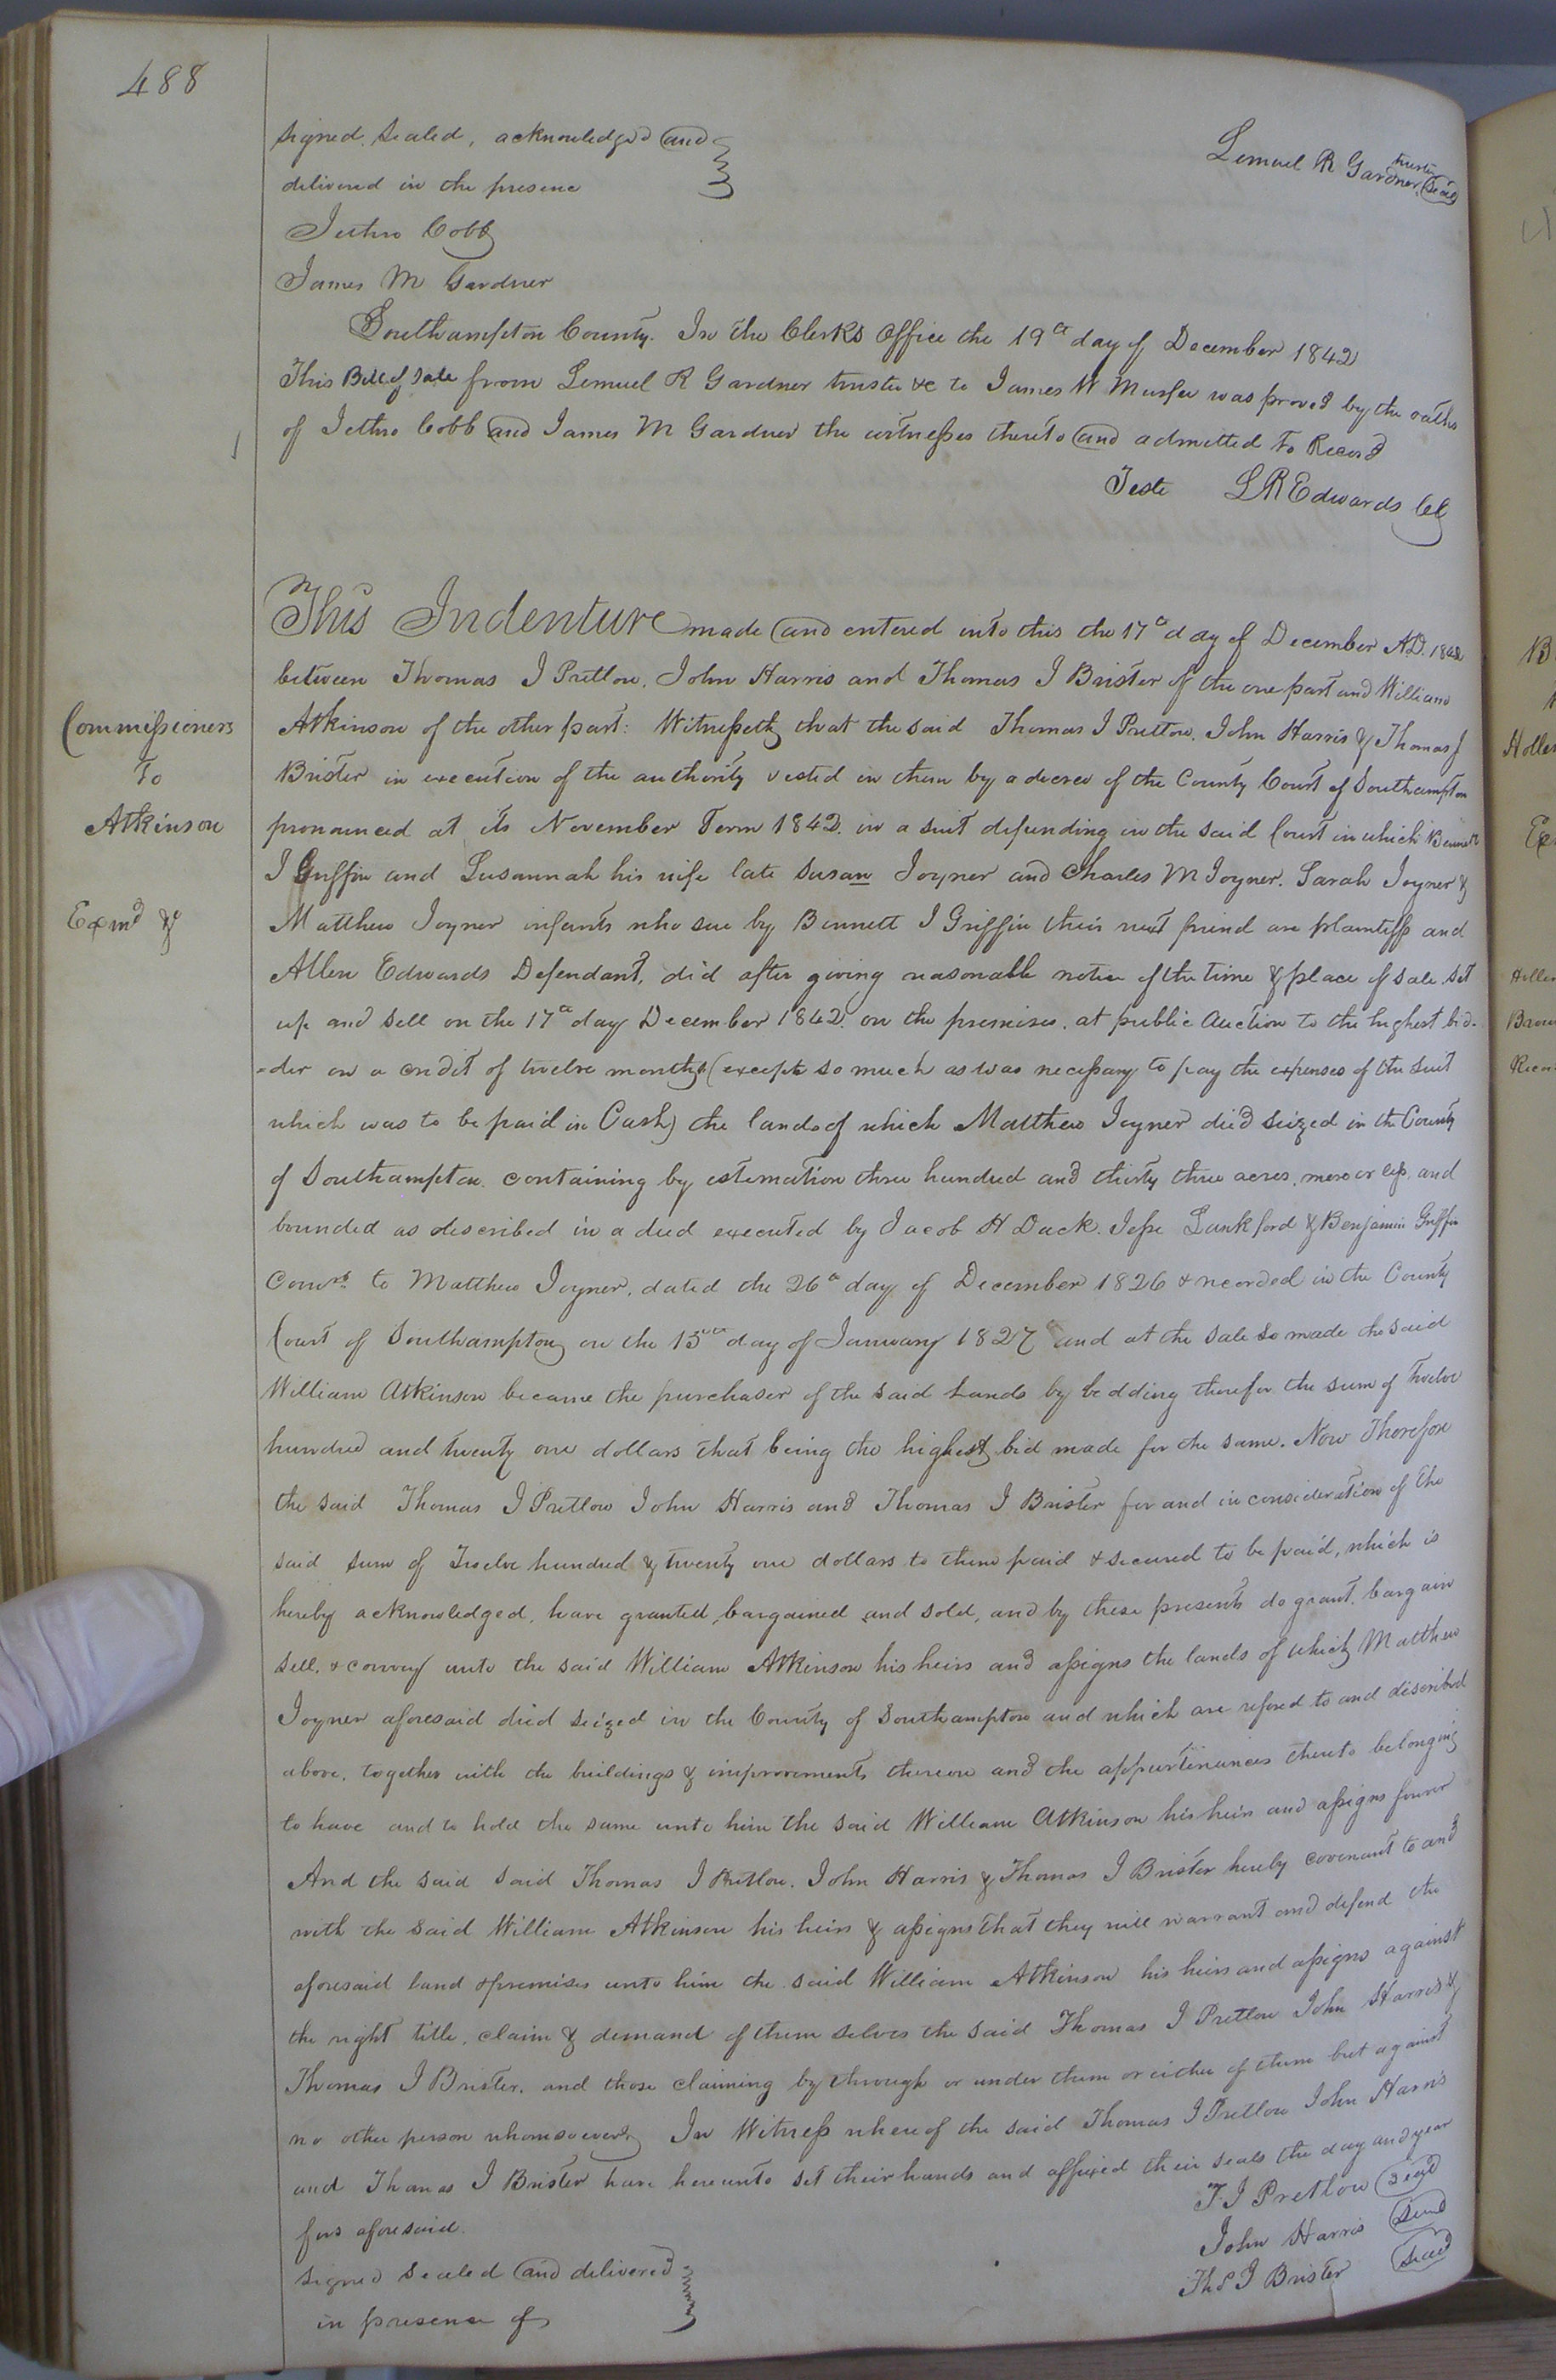 488
signed, sealed, acknowledged and
delivered in the presence
Jethro Cobb
James M Gardner
Lemuel R Gardner, trustee Seal
Southampton County. In the Clerks Office the 19th day of December 1842
This Bill of Sale from Lemuel R Gardner trustee &c to James W Murfee was proved by the oaths
of Jethro Cobb and James M Gardner the witnesses thereto and admitted to Record
Teste L R Edwards CC
Commissioners
To
Atkinson
Exmd &
This Indenture made and entered into this the 17th day of December A.D. 1842
between Thomas J Pretlow, John Harris and Thomas J Brister of the one part and William
Atkinson of the other part: Witnesseth that the said Thomas J Pretlow, John Harris & Thomas J
Brister in execution of the authority vested in them by a decree of the County Court of Southampton
pronounced at its November Term 1842. in a suit depending in the said Court in which Bennett
J Griffin and Susannah his wife late Susan Joyner and Charles M Joyner, Sarah Joyner &
Matthew Joyner infants who sue by Bennett J Griffin their next friend are plaintiffs and
Allen Edwards Defendant, did after giving reasonable notice of the time & place of sale set
up and sell on the 17th day December 1842. on the premises, at public Auction to the highest bid-
-der on a credit of twelve months (except so much as was necessary to pay the expenses of the suit
which was to be paid in Cash) the lands of which Matthew Joyner died seized in the County
of Southampton. containing by estimation three hundred and thirty three acres, more or less, and
bounded as described in a deed executed by Jacob H Duck, Jesse Lankford & Benjamin Griffin
Comrs to Matthew Joyner, dated the 26th day of December 1826 & recorded in the County
Court of Southampton on the 15th day of January 1827 and at the sale so made the said
William Atkinson became the purchaser of the said lands by bedding therefor the sum of twelve
hundred and twenty one dollars that being the highest bid made for the same. Now Therefore
the said Thomas J Pretlow John Harris and Thomas J Brister for and in consideration of the
said sum of Twelve hundred & twenty one dollars to them paid & secured to be paid, which is
hereby acknowledged, have granted, bargained and sold, and by these presents do grant, bargain
sell, & convey unto the said William Atkinson his heirs and assigns the lands of which Matthew
Joyner aforesaid died seized in the County of Southampton and which are refered to and discribed
above, together with the buildings & improvements thereon and the appurtinances thereto belonging
to have and to hold the same unto him the said William Atkinson his heirs and assigns forever
And the said said Thomas J Pretlow, John Harris & Thomas J Brister hereby covenant to and
with the said William Atkinson his heirs & assigns that they will warrant and defend the
aforesaid land & premises unto him the said William Atkinson his heirs and assigns against
the right title, claim & demand of them selves the said Thomas J Pretlow John Harris &
Thomas J Brister. and those claiming by through or under them or either of them but against
no other person whomsoever In Witness whereof the said Thomas J Pretlow John Harris
and Thomas J Brister have hereunto set their hands and affixed their seals the day and year
first aforesaid.
signed sealed and delivered
in presence of
T. J Pretlow Seal
John Harris Seal
Ths J Brister Seal